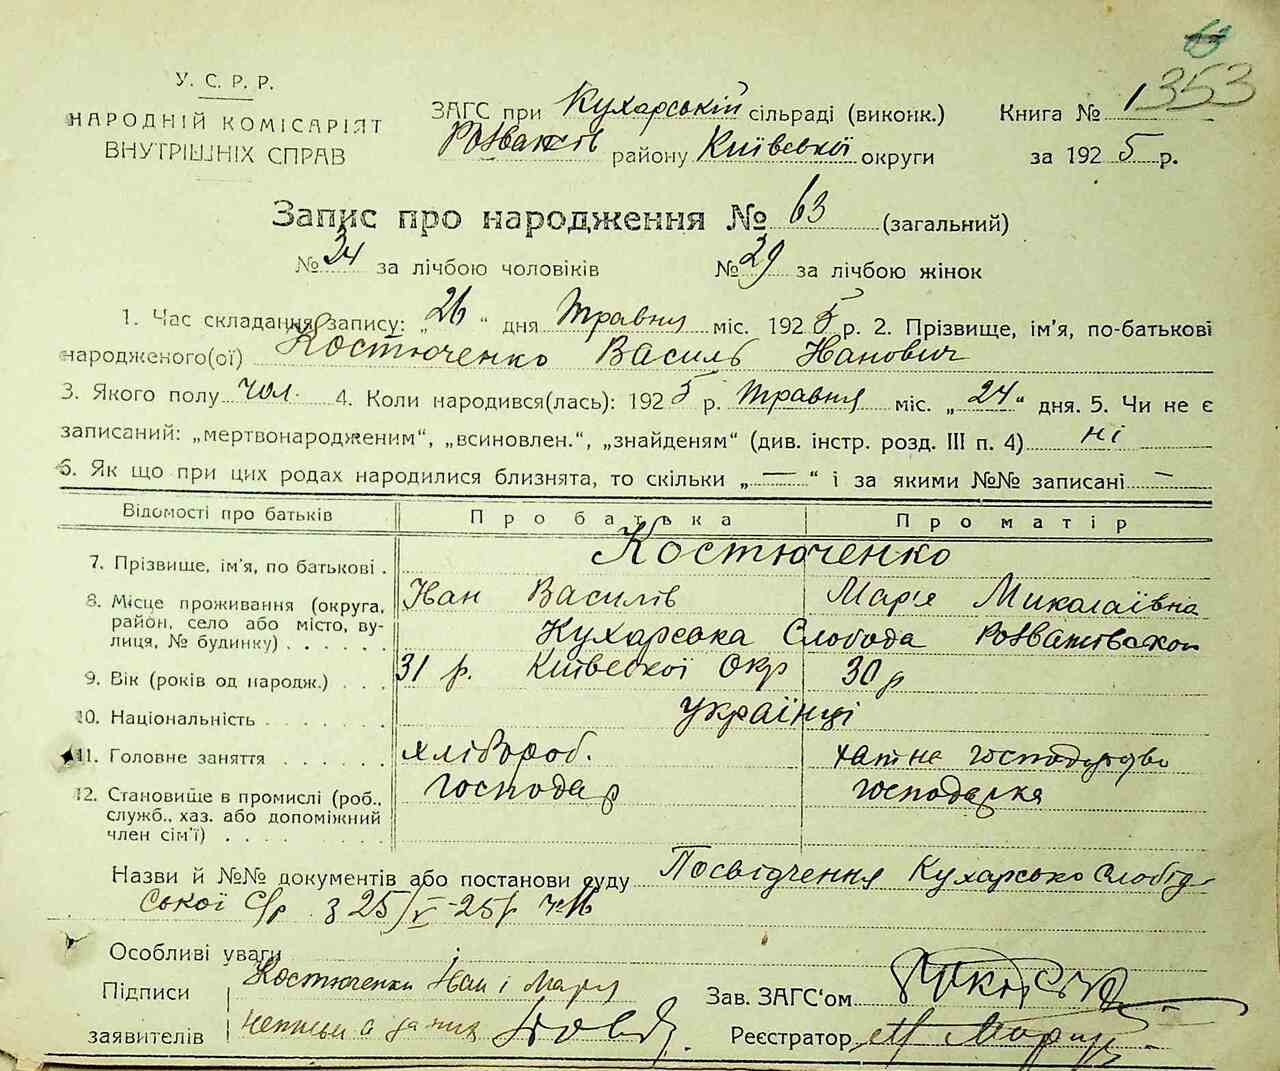 63
353
У. С. Р. Р.
НАРОДНІЙ КОМІСАРІЯТ
ВНУТРІШНІХ СПРАВ
ЗАГС при Кухарській сільраді (виконк.)
Розважів району Київської округи
Книга № 1
за 1925 р.
Запис про народження № 63 (загальний)
№ 34 за лічбою чоловіків № 29 за лічбою жінок
1. Час складання запису: „26“ дня Травня міс. 1925 р. 2. Прізвище, ім'я, по-батькові
народженого(ої) Костюченко Василь Іванович
3. Якого полу чол. 4. Коли народився(лась): 1925 р. Травня міс. „24“ дня. 5. Чи не є
записаний: „мертвонародженим“, „всиновлен.“, „знайденям“ (див. інстр. розд. III п. 4) ні
6. Як що при цих родах народилися близнята, то скільки „—“ і за якими №№ записані —
Відомості про батьків Про батька Про матір
7. Прізвище, ім'я, по батькові . Костюченко
Іван Василів Мар'я Миколаївна
8. Місце проживання (округа,
район, село або місто, ву-
лиця, № будинку) . . . . . .
Кухарська Слобода Розважівской
Київської Окр
9. Вік (років од народж.) . . . 31 р. 30 р
10. Національність . . . . . . . . українці
11. Головне заняття . . . . . . хлібороб. хатне господарство
12. Становище в промислі (роб.,
служб., хаз. або допоміжний
член сім'ї) . . . . . . . .
господар господарка
Назви й №№ документів або постанови суду Посвідчення Кухарсько Слобід-
ської С/р з 25/V-25 р. № 16
Особливі уваги
Підписи
заявителів
Костюченки Іван і Марія
неписьм а за них
Зав. ЗАГС'ом
Реєстратор